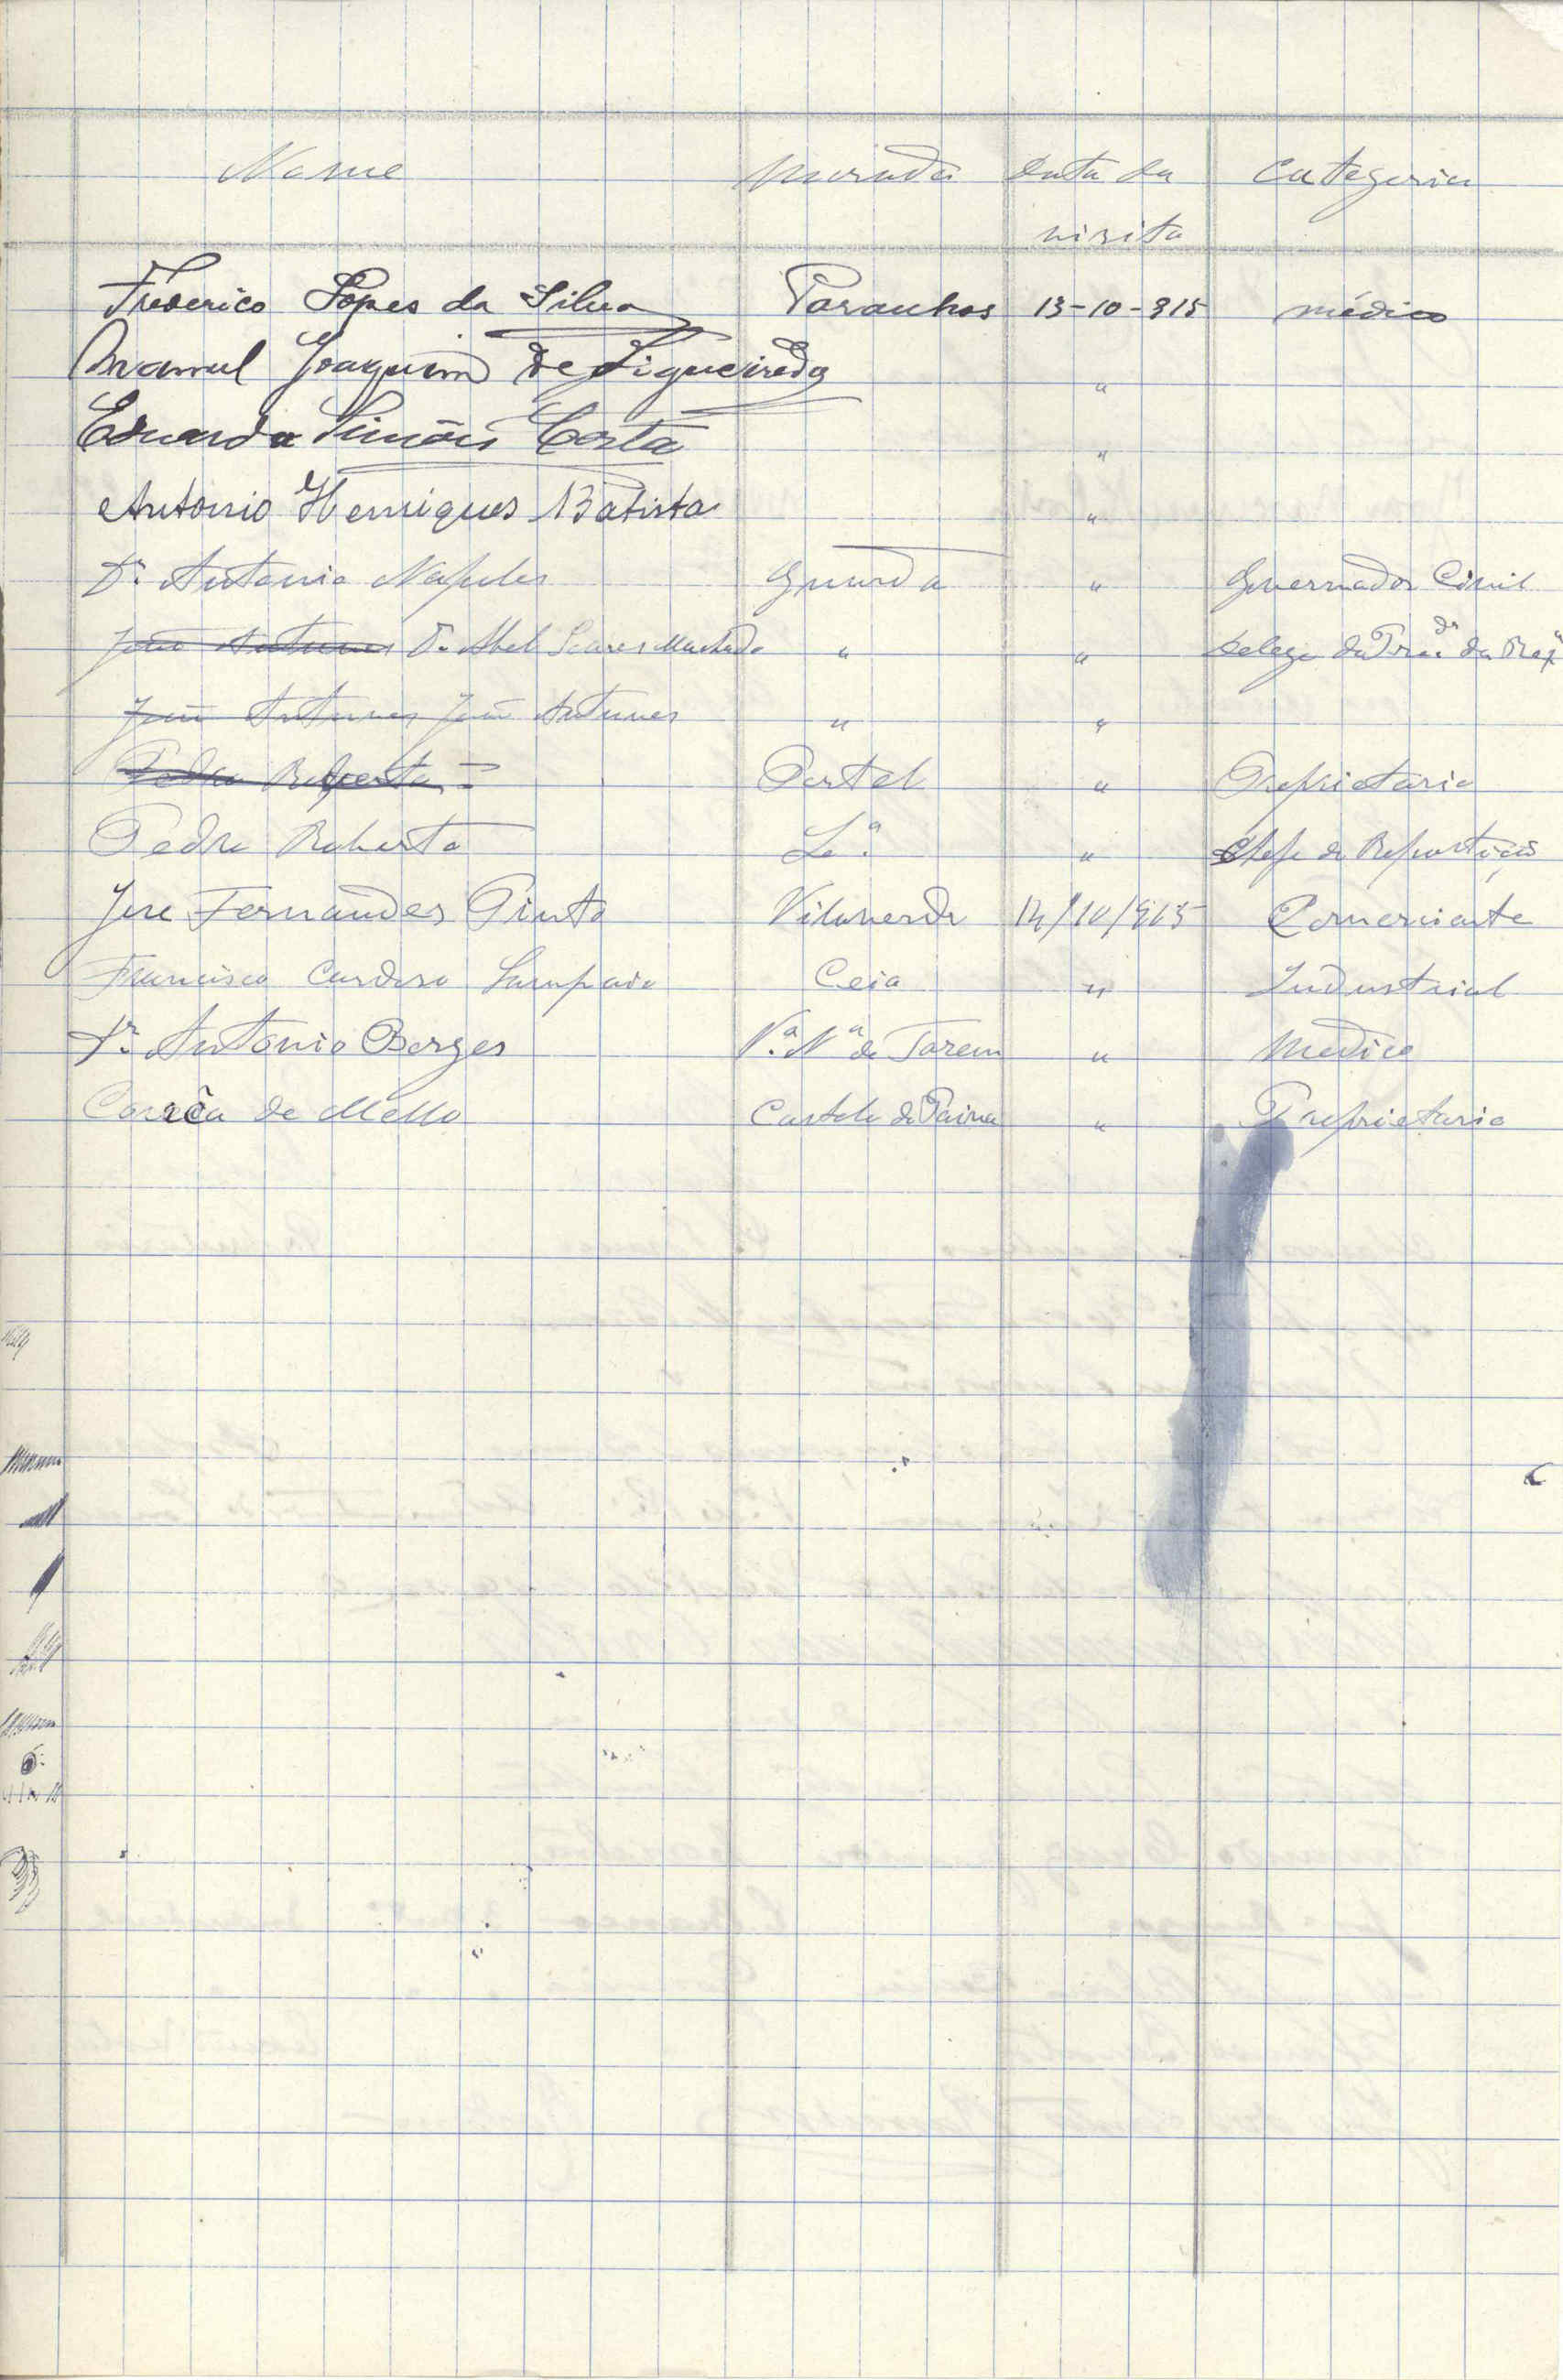 Nome Morada Data da Categoria
visita
Frederico Lopes da Silva Paranhos 13-10-915 médico
Manuel Joaquim de Figueiredo "
Eduardo Simões Costa "
Antonio Henriques Batista "
Dr. Antonio Napoles Guarda " Governador Civil
João Antunes Dr. Abel Soares Machado " " Deleg. do Pro. da Rep.
João Antunes João Antunes " "
Pedro Roberto = Portel " Proprietario
Pedro Roberto Lx.ª " Chefe de Repartição
Jose Fernandes Pinto Vilaverde 14/10/915 Comerciante
Francisco Cardoso Sampaio Ceia " Industrial
Dr. Antonio Borges V.ª N.ª de Tarem " Medico
Corrêa de Mello Castelo de Paiva " Proprietario